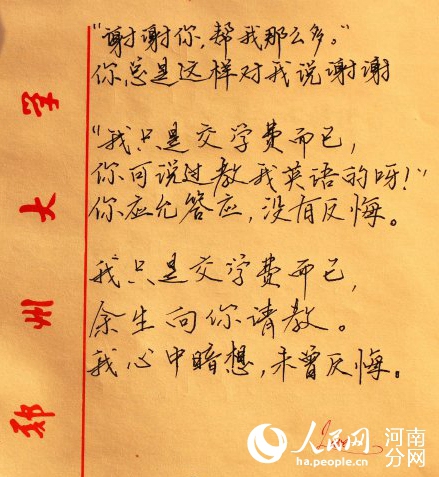 “谢谢你,帮我那么多。”
你总是这样对我说谢谢
“我只是交学费而已,
你可说过教我英语的呀!”
你应允答应,没有反悔。
我只是交学费而已,
余生向你请教。
我心中暗想,未曾反悔。
郑州大学
人民网 河南分网
ha.people.cn